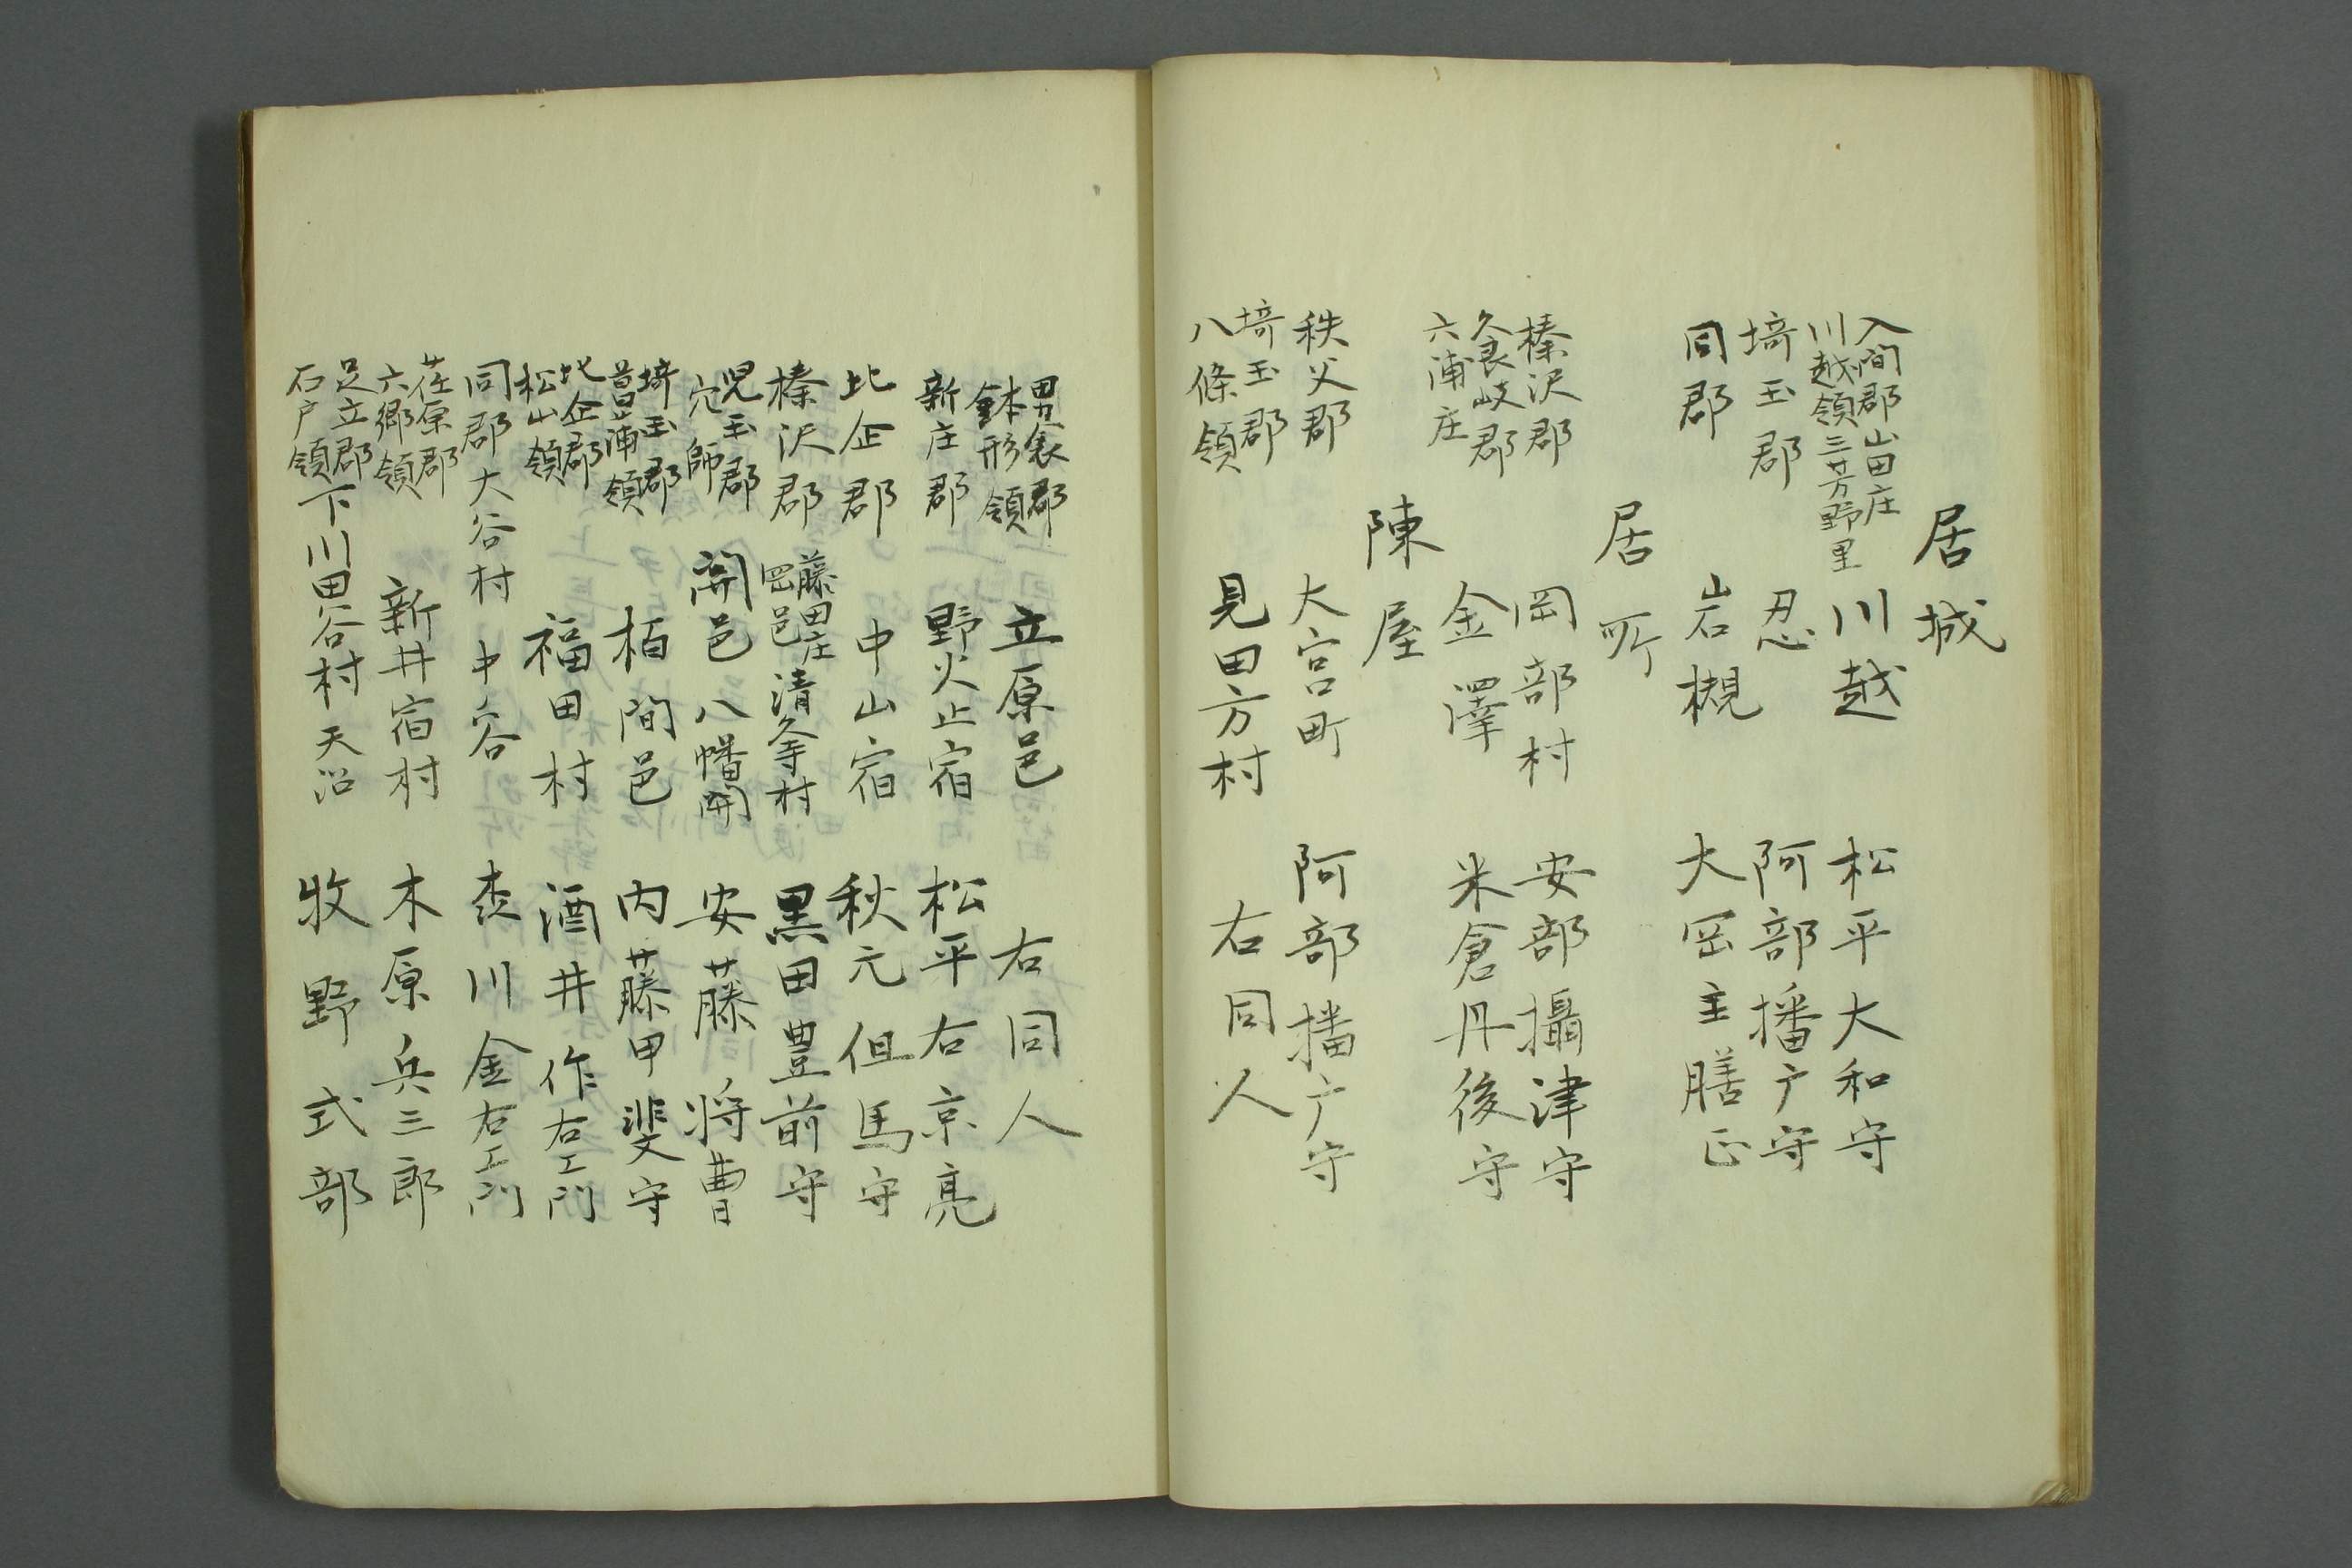 居城
入間郡山田庄
川越領三芳野里 川越 松平大和守
埼玉郡 忍 阿部播广守
同郡 岩槻 大岡主膳正
居所
榛沢郡 岡部村 安部攝津守
久良岐郡
六浦庄 金澤 米倉丹後守
陳屋
秩父郡 大宮町 阿部播广守
埼玉郡
八條領 見田方村 右同人
男衾郡
鉢形領 立原邑 右同人
新庄郡 野火止宿 松平右京亮
比企郡 中山宿 秋元但馬守
榛沢郡 藤田庄
岡邑 清久寺村 黒田豊前守
児玉郡
穴師 開邑 八幡開 安藤将曹
埼玉郡
菖蒲領 栢間邑 内藤甲斐守
比企郡
松山領 福田村 酒井作右エ門
同郡大谷村 中谷 森川金右エ門
荏原郡
六郷領 新井宿村 木原兵三郎
足立郡
石戸領 下川田谷村 天沼 牧野式部